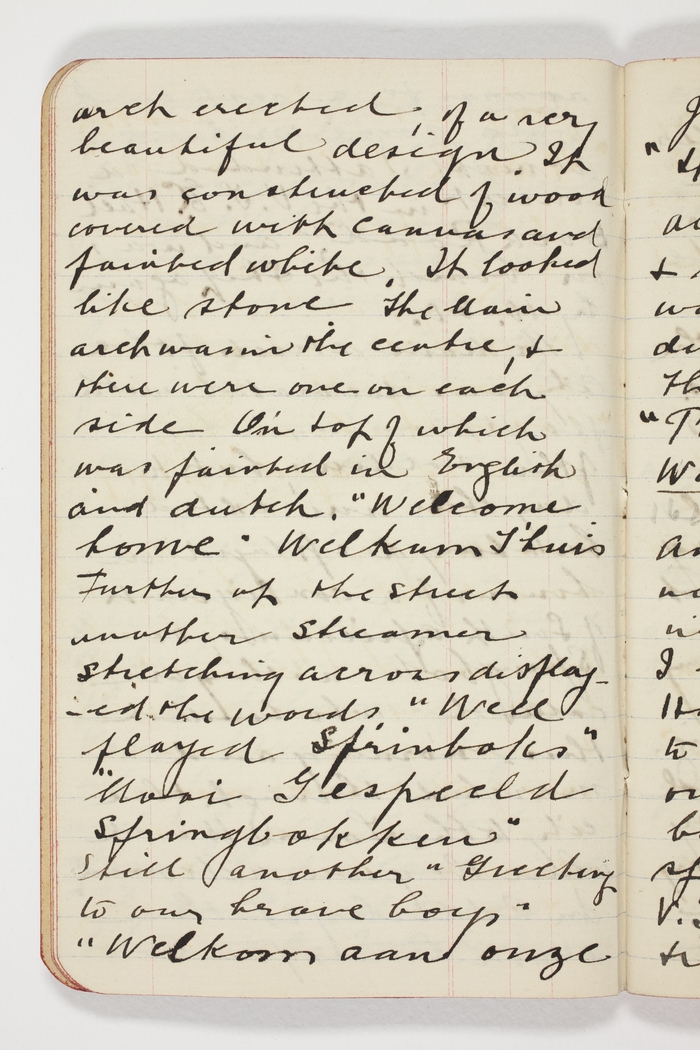 arch erected, of a very
beautiful design It
was constructed of wood
covered with canvas and
painted white, It looked
like stone. The Main
arch was in the centre, &
there were one on each
side On top of which
was painted in English
and dutch. "Welcome
home" Welkum T'huis
Further up the street
another streamer
stretching across display-
-ed the words, "Well
played Sprinboks"
"Mooi Gespeeld
Springbokken"
Still another "Greeting
to our brave boys"
"Welkom aan onze